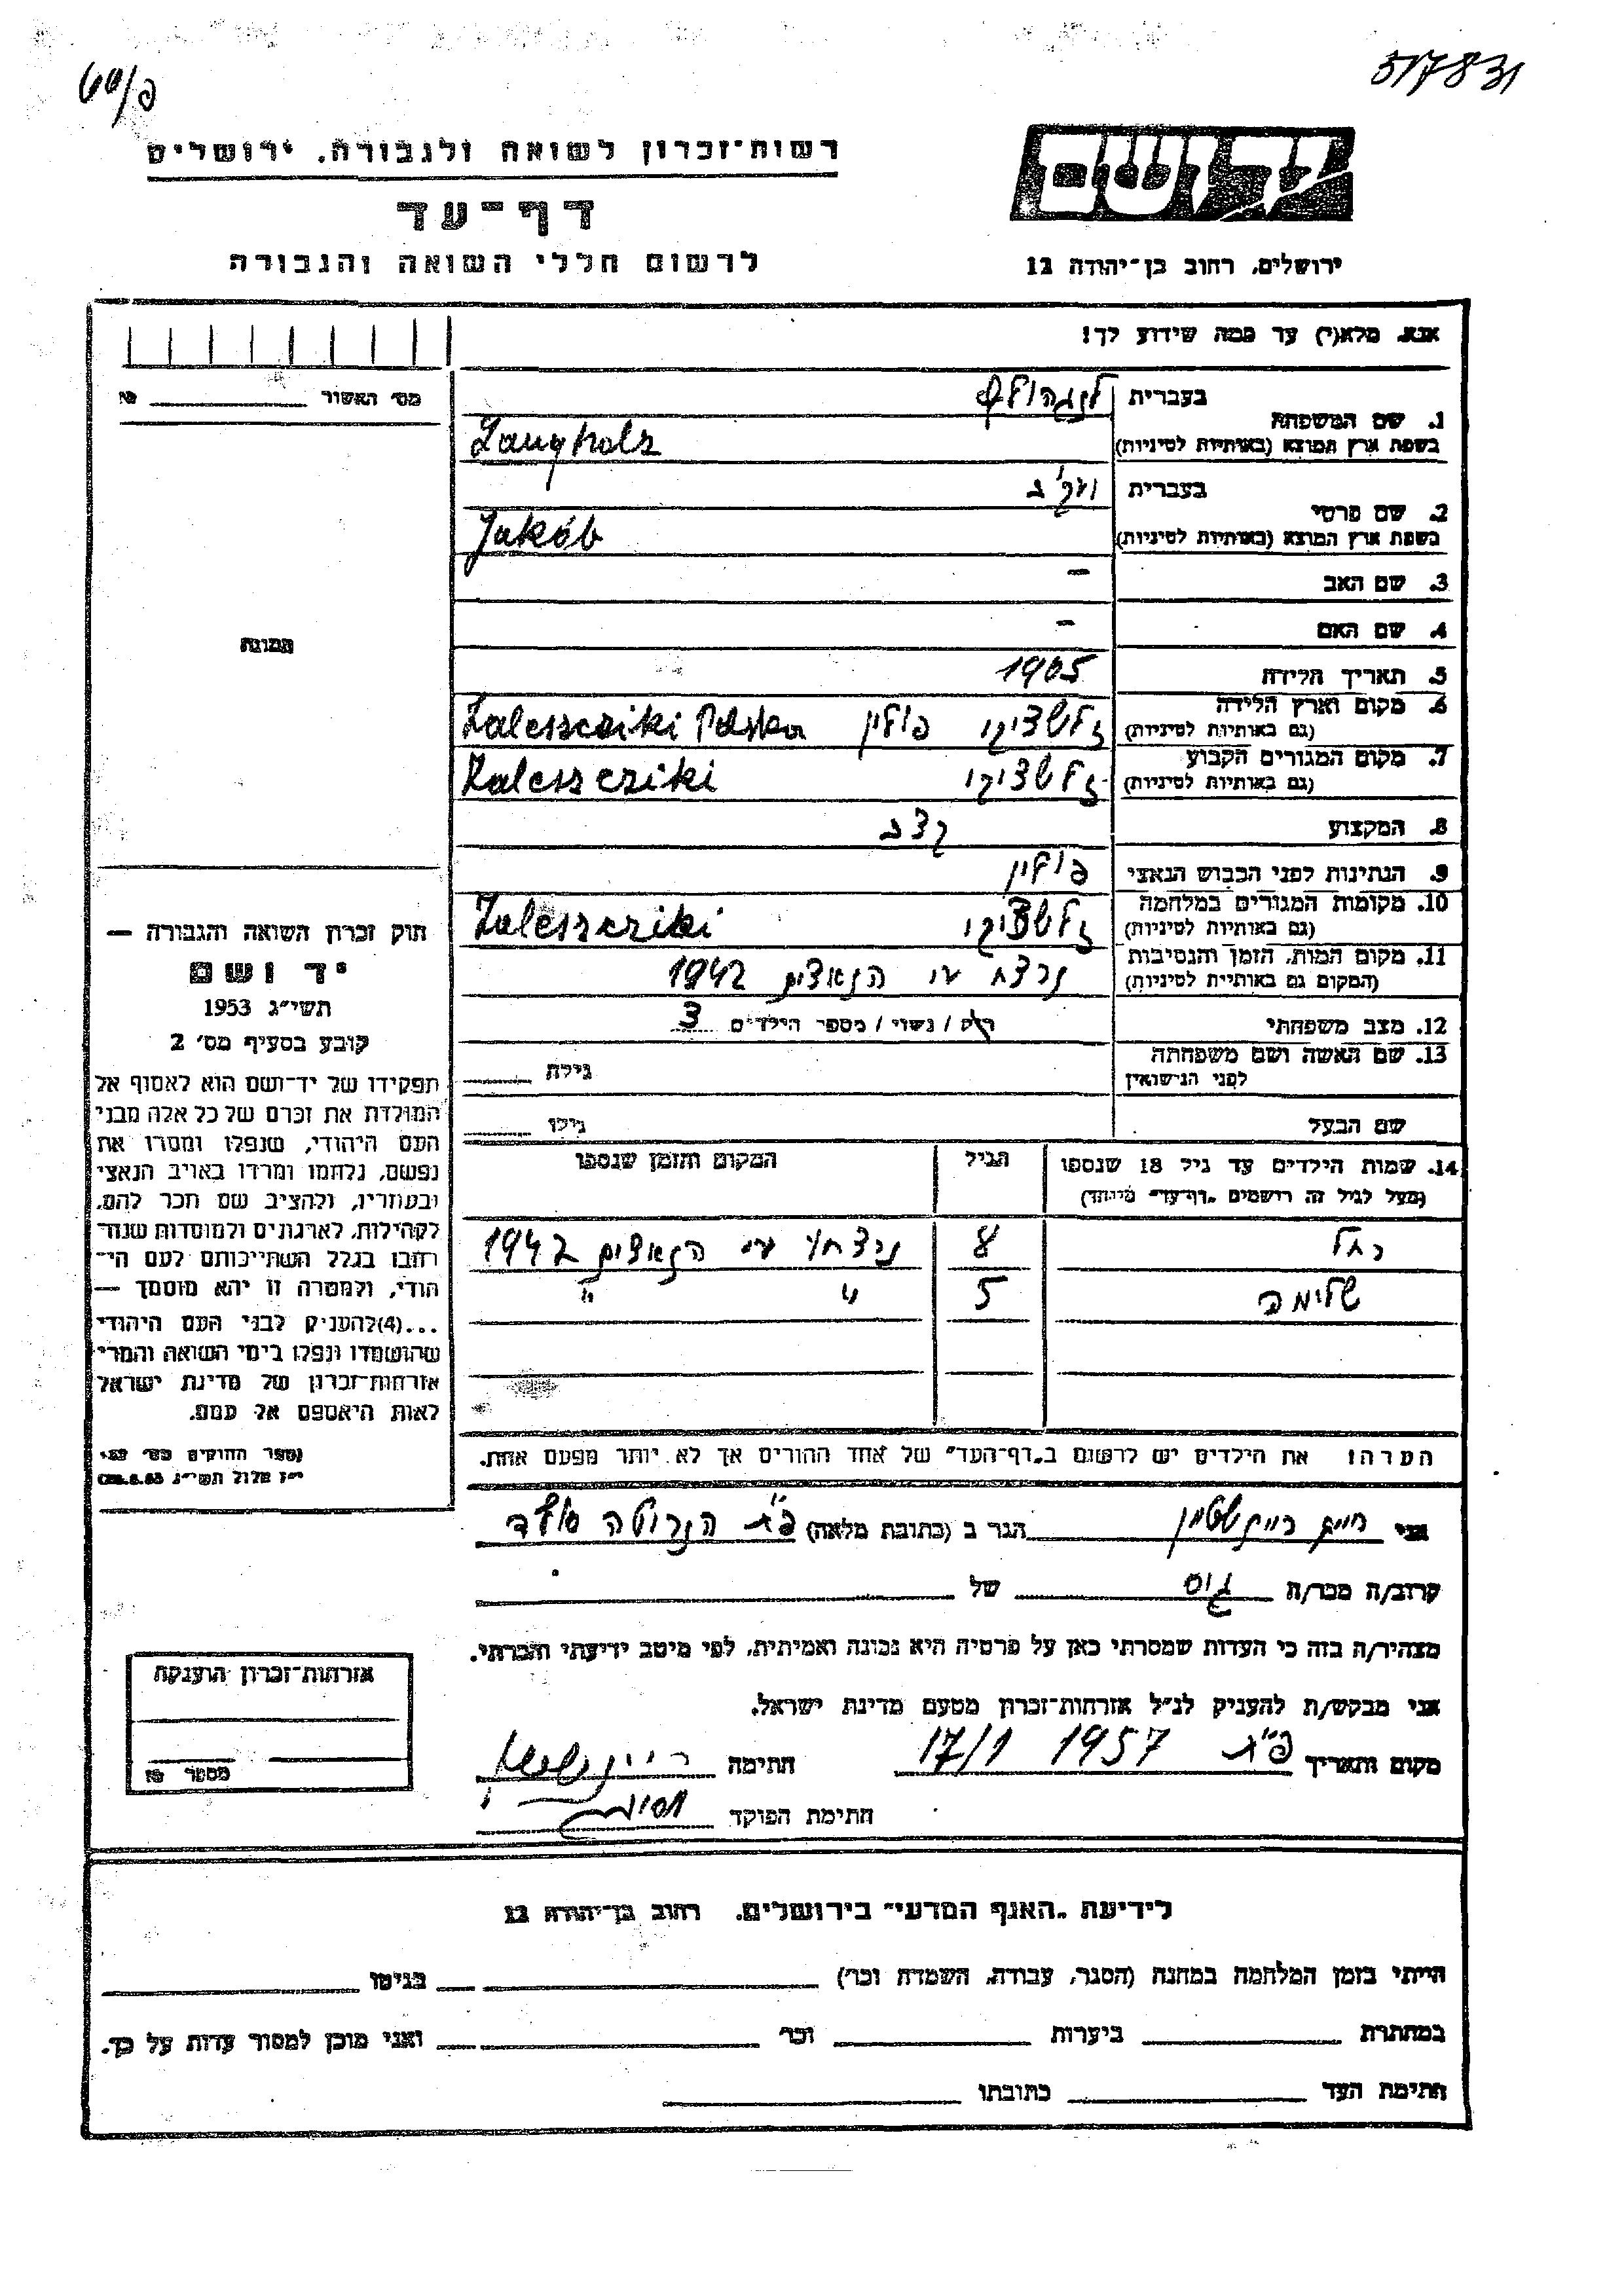 517831
יד ושם
ירושלים, רחוב בן־יהודה 12
רשות־זכרון לשואה ולגבורה, ירושלים
דף־עד
לרשום חללי השואה והגבורה
אנא, מלא(י) עד כמה שידוע לך!
מס׳ האשור
1. שם המשפחה
בעברית לנגהולץ
בשפת ארץ המוצא (באותיות לטיניות) Langholz
2. שם פרטי
בעברית יעקב
בשפת ארץ המוצא (באותיות לטיניות) Jakób
3. שם האב –
4. שם האם –
5. תאריך הלידה 1905
6. מקום וארץ הלידה זלשציקי פולין Zalesscziki Polska
(גם באותיות לטיניות)
7. מקום המגורים הקבוע זלשציקי Zalesscziki
(גם באותיות לטיניות)
8. המקצוע קצב
9. הנתינות לפני הכבוש הנאצי פולין
10. מקומות המגורים במלחמה זלשציקי Zalesscziki
(גם באותיות לטיניות)
11. מקום המות, הזמן והנסיבות נרצח ע״י הנאצים 1942
(המקום גם באותיות לטיניות)
12. מצב משפחתי רוק / נשוי / מספר הילדים 3
13. שם האשה ושם משפחתה גילה
לפני הנישואין
שם הבעל גילו
14. שמות הילדים עד גיל 18 שנספו הגיל המקום והזמן שנספו
(מעל לגיל זה רושמים „דף־עד״ מיוחד)
רחל 8 נרצחו ע״י הנאצים 1942
שלימה 5 " "
הערה: את הילדים יש לרשום ב„דף־העד״ של אחד ההורים אך לא יותר מפעם אחת.
תמונה
חוק זכרון השואה והגבורה —
יד ושם
תשי״ג 1953
קובע בסעיף מס׳ 2
תפקידו של יד־ושם הוא לאסוף אל
המולדת את זכרם של כל אלה מבני
העם היהודי, שנפלו ומסרו את
נפשם, נלחמו ומרדו באויב הנאצי
ובעוזריו, ולהציב שם וזכר להם,
לקהילות, לארגונים ולמוסדות שנח־
רבו בגלל השתייכותם לעם הי־
הודי, ולמטרה זו יהא מוסמך —
...(4) להעניק לבני העם היהודי
שהושמדו ונפלו בימי השואה והמרי
אזרחות־זכרון של מדינת ישראל
לאות היאספם אל עמם.
אני חיים הגר ב (כתובת מלאה) פ״ג הנריטה סולד
קרוב/ה מכר/ה גיס של
מצהיר/ה בזה כי העדות שמסרתי כאן על פרטיה היא נכונה ואמיתית, לפי מיטב ידיעתי והכרתי.
אני מבקש/ת להעניק לנ״ל אזרחות־זכרון מטעם מדינת ישראל.
מקום ותאריך פ״ג 17/1 1957 חתימה
חתימת הפוקד
אזרחות־זכרון הוענקה
מספר
לידיעת „האגף המדעי״ בירושלים, רחוב בן־יהודה 12
הייתי בזמן המלחמה במחנה (הסגר, עבודה, השמדה וכו׳) בגיטו
במחתרת ביערות וכו׳ ואני מוכן למסור עדות על כך.
חתימת העד כתובתו